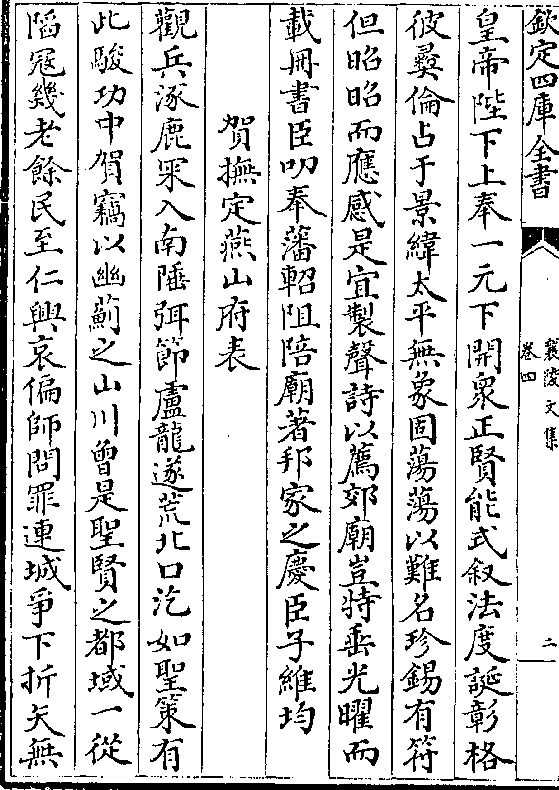 欽定四庫全書
襄陵文集
卷四
二
皇帝陛下上奉一元下開衆正賢能式叙法度誕彰格
彼彞倫占于景緯太平無象固蕩蕩以難名珍錫有符
但昭昭而應感是宜製聲詩以薦郊廟豈特垂光曜而
載冊書臣叨奉藩軺阻陪廟著邦家之慶臣子維均
賀撫定燕山府表
觀兵涿鹿罙入南陲弭節盧龍遂荒北口汔如聖策有
此駿功中賀竊以幽薊之山川曾是聖賢之都域一從
陷冦幾老餘民至仁興哀偏師問罪連城爭下折矢無